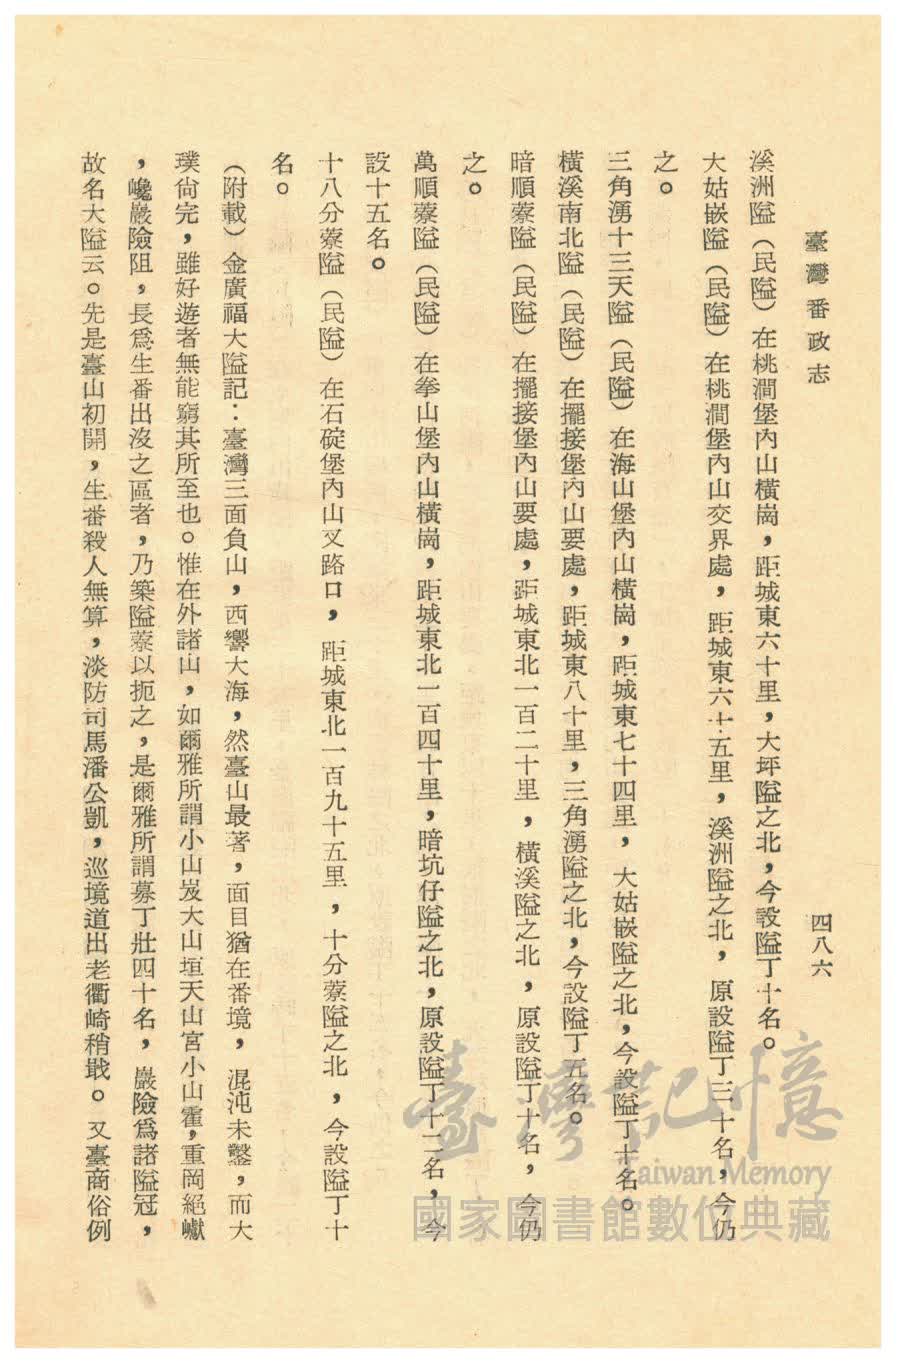 臺灣番政志
四八六
溪洲隘（民隘）在桃澗堡內山橫崗，距城東六十里，大坪隘之北，今設隘丁十名。
大姑嵌隘（民隘）在桃澗堡內山交界處，距城東六十五里，溪洲隘之北，原設隘丁三十名，今仍
之。
三角湧十三天隘（民隘）在海山堡內山橫崗，距城東七十四里，大姑嵌隘之北，今設隘丁十名。
橫溪南北隘（民隘）在擺接堡內山要處，距城東八十里，三角湧隘之北，今設隘丁五名。
暗順藔隘（民隘）在擺接堡內山要處，距城東北一百二十里，橫溪隘之北，原設隘丁十名，今仍
之。
萬順藔隘（民隘）在拳山堡內山橫崗，距城東北一百四十里，暗坑仔隘之北，原設隘丁十二名，今
設十五名。
十八分藔隘（民隘）在石碇堡內山叉路口，距城東北一百九十五里，十分藔隘之北，今設隘丁十
名。
（附載）金廣福大隘記：臺灣三面負山，西響大海，然臺山最著，面目猶在番境，混沌未鑿，而大
璞尙完，雖好遊者無能窮其所至也。惟在外諸山，如爾雅所謂小山岌大山垣天山宮小山霍，重岡絕巘
，巉巖險阻，長爲生番出沒之區者，乃築隘藔以扼之，是爾雅所謂募丁壯四十名，巖險爲諸隘冠，
故名大隘云。先是臺山初開，生番殺人無算，淡防司馬潘公凱，巡境道出老衢崎稍戢。又臺商俗例
臺灣記憶
Taiwan Memory
國家圖書館數位典藏